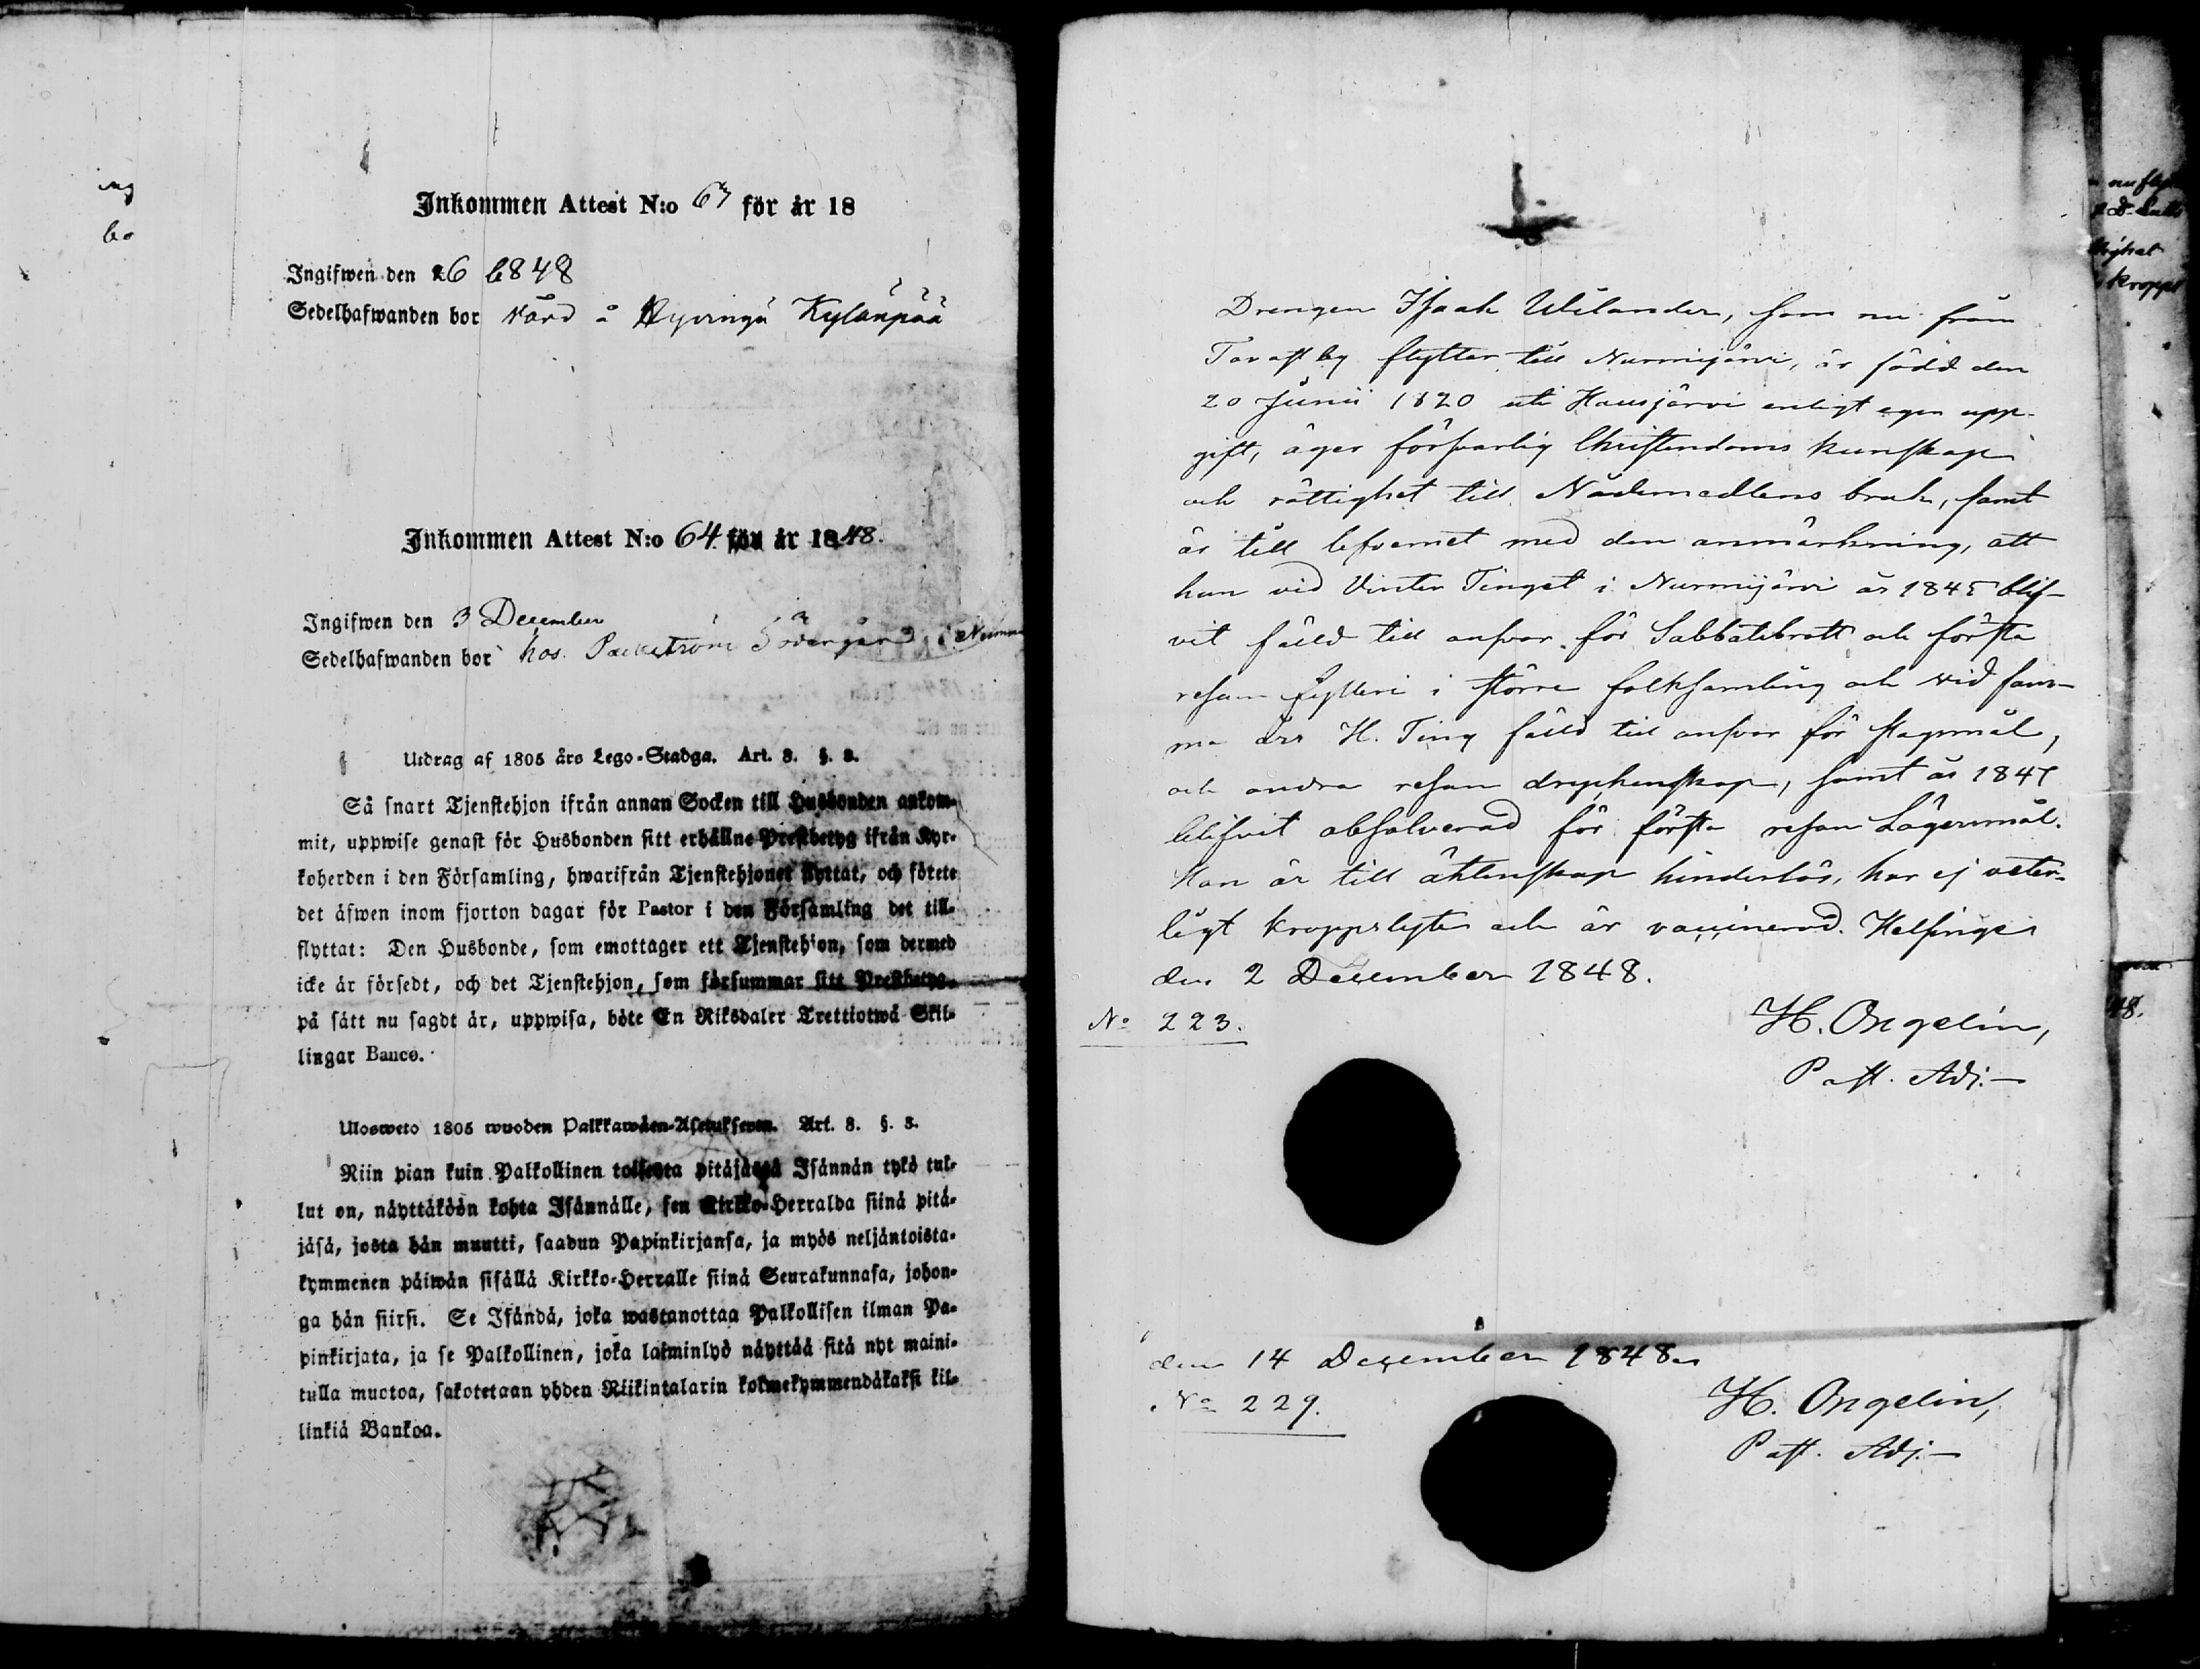 Inkommen Attest N:o 63 för år 18
Ingifwen den 26 6848
Sedelhafwanden bor Nård å Hyvingä Kylänpää
Inkommen Attest N:o 64 för år 1848.
Ingifwen den 3 December
Sedelhafwanden bor hos Södergård i
Utdrag af 1805 års Lego-Stadga. Art. 8. §. 3.
Så snart Tjenstehjon ifrån annan Socken till Husbonden ankom-
mit, uppwise genast för Husbonden sitt erhållne Prestbetyg ifrån Kyr-
koherden i den Församling, hwarifrån Tjenstehjonet flyttat, och förete
det äfwen inom fjorton dagar för Pastor i den Församling det till-
flyttat: Den Husbonde, som emottager ett Tjenstehjon, som dermed
icke är försedt, och det Tjenstehjon, som försummar sitt Prestbetyg,
på sätt nu sagdt är, uppwisa, böte En Riksdaler Trettiotwå Skil-
lingar Banco.
Ulosweto 1805 wuoden Palkkawäen-Asetuksesen. Art. 8. §. 3.
Niin pian kuin Palkollinen toisesta pitäjästä Isännän tykö tul-
lut on, näyttäköön kohta Isännälle, sen Kirkko-Herralda siinä pitä-
jäsä, josta hän muutti, saadun Papinkirjansa, ja myös neljäntoista-
kymmenen päiwän sisällä Kirkko-Herralle siinä Seurakunnasa, johon-
ga hän siirsi. Se Isändä, joka wastanottaa Palkollisen ilman Pa-
pinkirjata, ja se Palkollinen, joka laiminlyö näyttää sitä nyt maini-
tulla muotoa, sakotetaan yhden Riikintalarin kolmekymmendäkaksi kil-
linkiä Bankoa.
Drengen Isaak Wilander, som nu från
Tavastby flyttar till Nurmijärvi, är född den
20 Junii 1820 uti Hausjärvi enligt egen upp-
gift, äger försvarlig Christendoms kunskap
och rättighet till Nådemedlens bruk, samt
är till lefvernet med den anmärkning, att
han vid Vinter Tinget i Nurmijärvi år 1845 blif-
vit fälld till ansvar för Sabbatsbrott och första
resan fylleri i större folksamling och vid sam-
ma års H. Ting fälld till ansvar för slagsmål,
och andra resan dryckenskap, samt år 1847
blifvit absolverad för första resan Lägersmål.
Han är till äktenskap hinderlös, har ej veter-
ligt kroppslyte och är vaccinerad. Helsinge
den 2 December 1848.
No 223.
H. Ongelin,
Past. Adj.
den 14 December 1848.
No 229.
H. Ongelin,
Past. Adj.